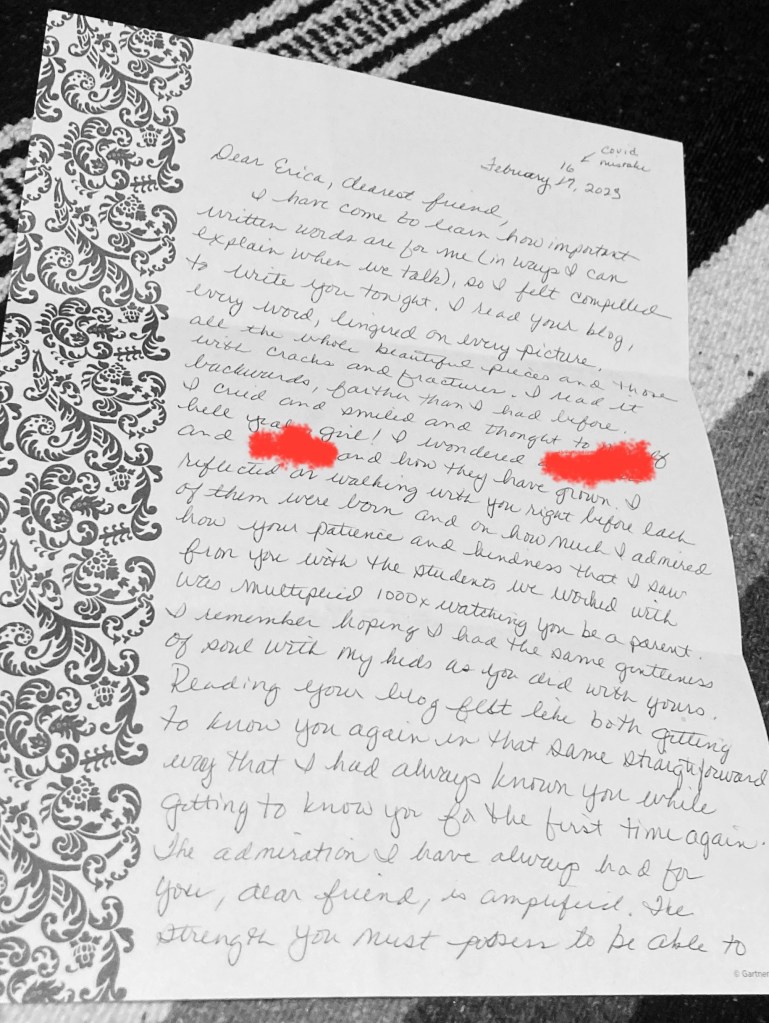 covid
mistake
February 16 17, 2023
Dear Erica, dearest friend,
I have come to learn how important
written words are for me (in ways I can
explain when we talk), so I felt compelled
to write you tonight. I read your blog,
every word, lingered on every picture.
all the whole beautiful pieces and those
with cracks and fractures. I read it
backwards, farther than I had before.
I cried and smiled and thought to
hell yeah girl! I wondered of
and and how they have grown. I
reflected on walking with you right before each
of them were born and on how much I admired
how your patience and kindness that I saw
from you with the students we worked with
was multiplied 1000x watching you be a parent.
I remember hoping I had the same gentleness
of soul with my kids as you did with yours.
Reading your blog felt like both getting
to know you again in that same straighforward
way that I had always known you while
getting to know you for the first time again.
The admiration I have always had for
you, dear friend, is amplified. The
strength you must possess to be able to
© Gartner